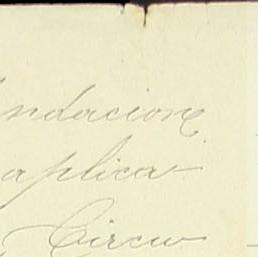 ndacione
aplica
Circu